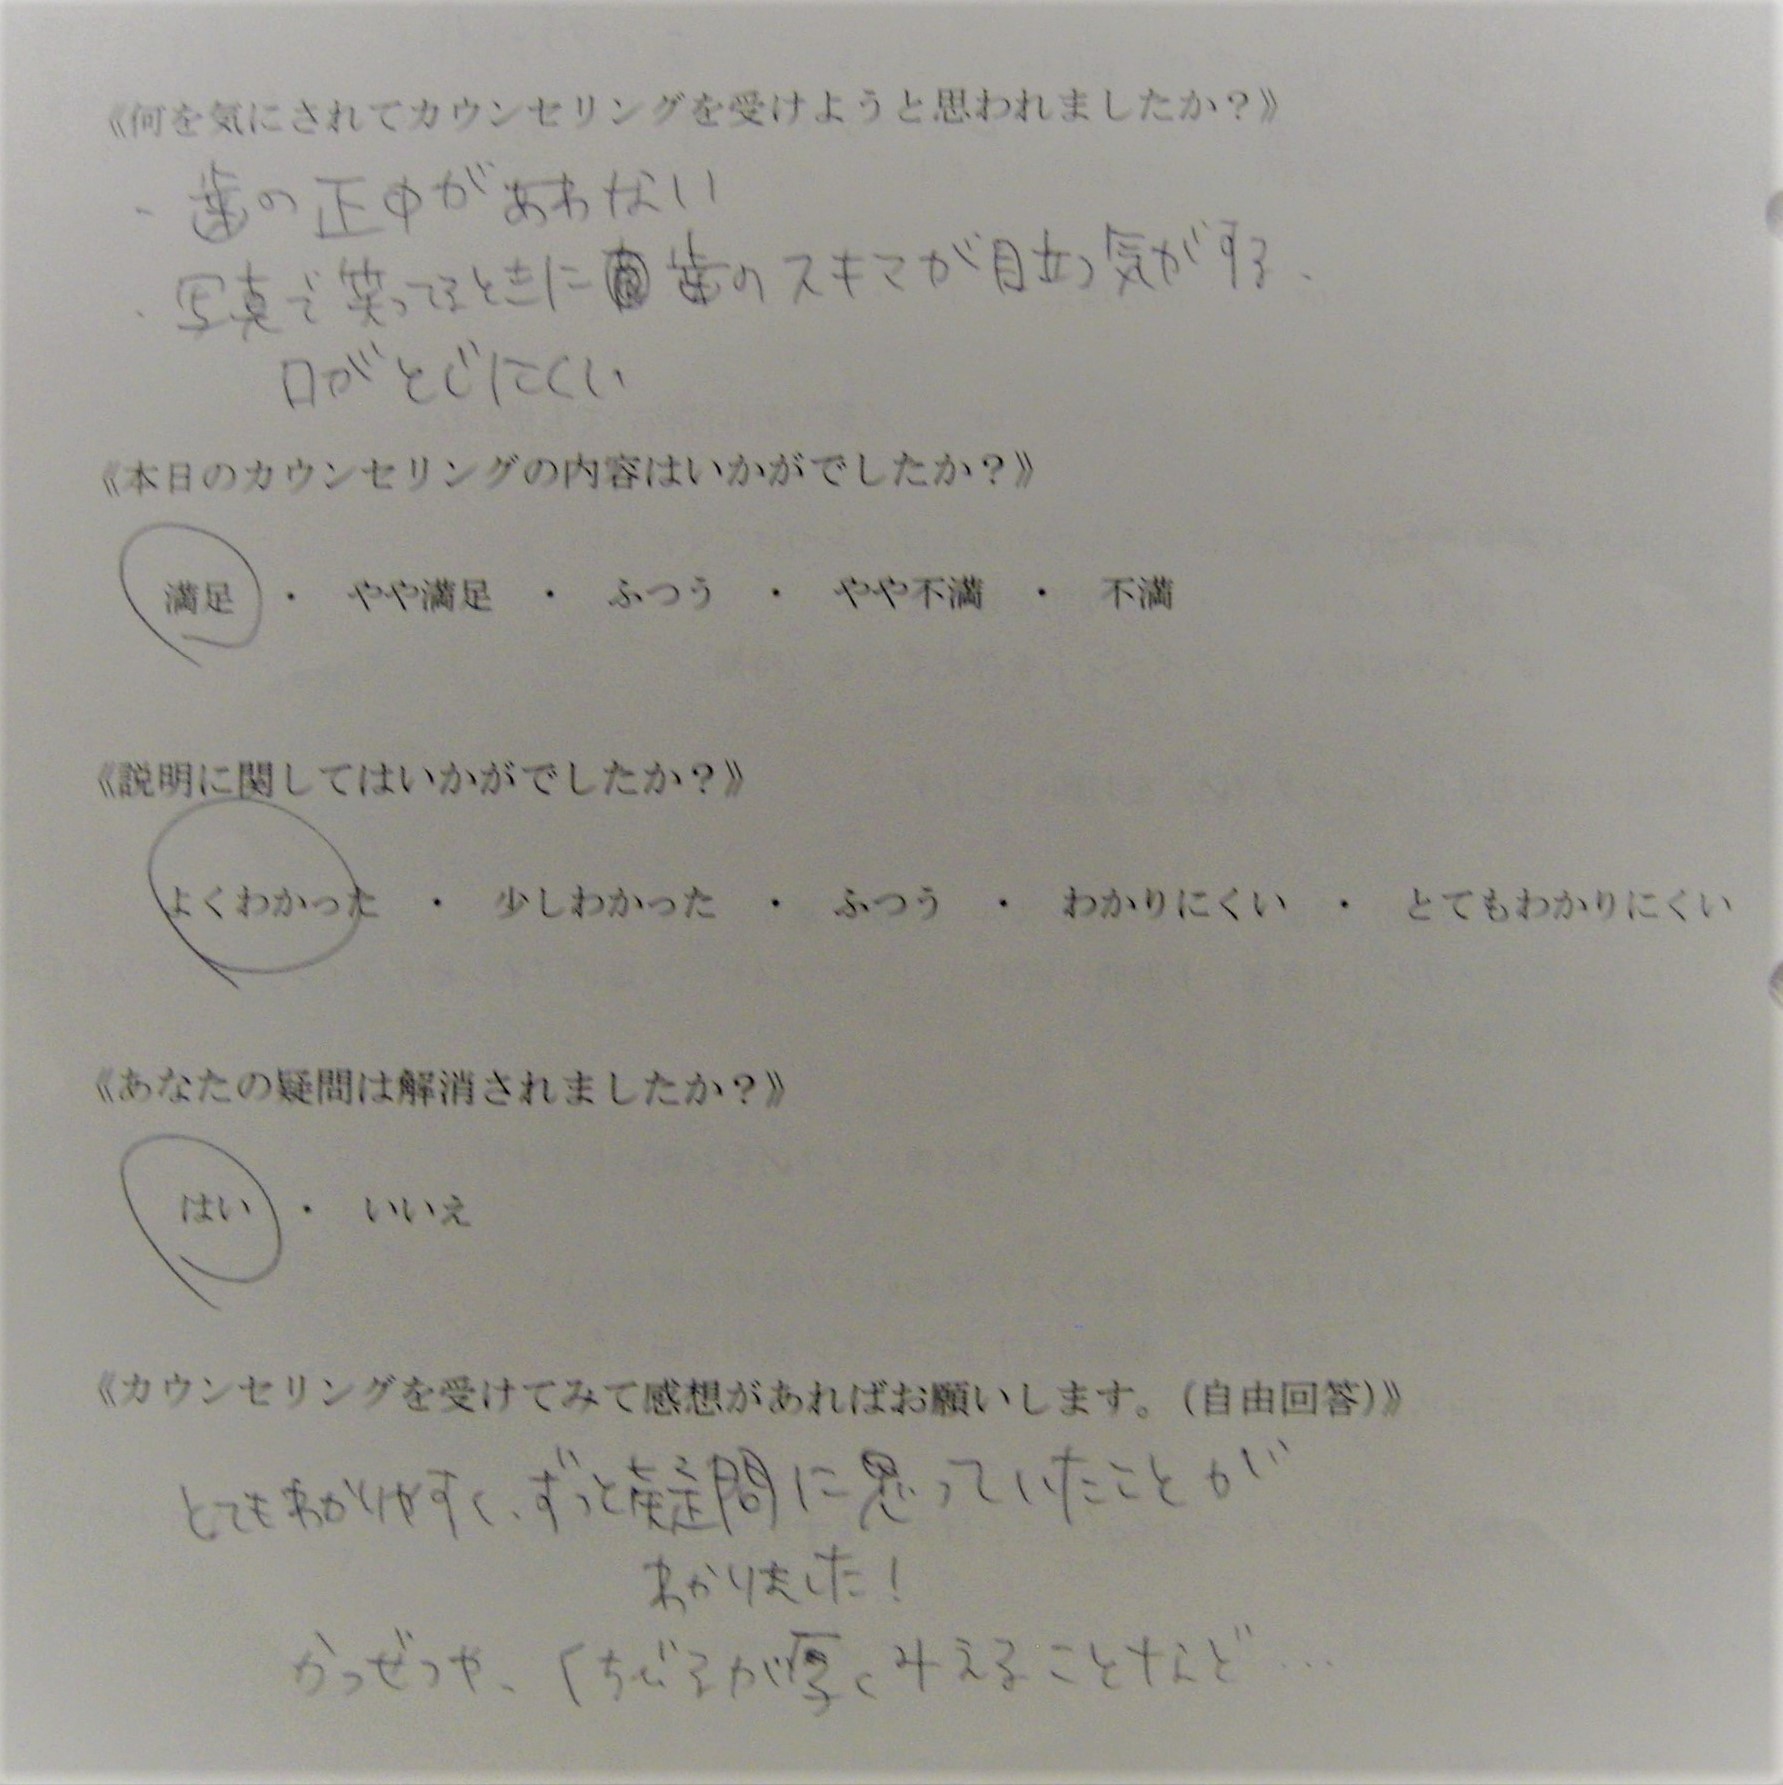 《何を気にされてカウンセリングを受けようと思われましたか？》
・歯の正中があわない
・写真で笑ってるときに歯のスキマが目立つ気がする.
口がとじにくい
《本日のカウンセリングの内容はいかがでしたか？》
満足 ・ やや満足 ・ ふつう ・ やや不満 ・ 不満
《説明に関してはいかがでしたか？》
よくわかった ・ 少しわかった ・ ふつう ・ わかりにくい ・ とてもわかりにくい
《あなたの疑問は解消されましたか？》
はい ・ いいえ
《カウンセリングを受けてみて感想があればお願いします。(自由回答)》
とてもわかりやすく、ずっと疑問に思っていたことが
わかりました！
かつぜつや、くちびるが厚くみえることなど…